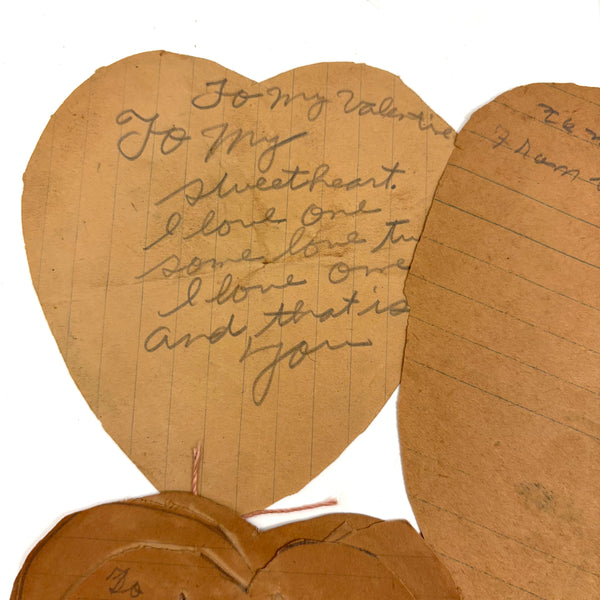 To My Valentine
To My
sweetheart.
I love one
some love tw
I love one
and that is
you
To